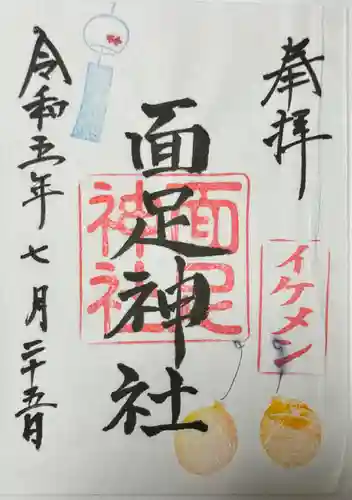 奉拝
イケメン
面足神社
面足
神社
令和五年七月二十五日